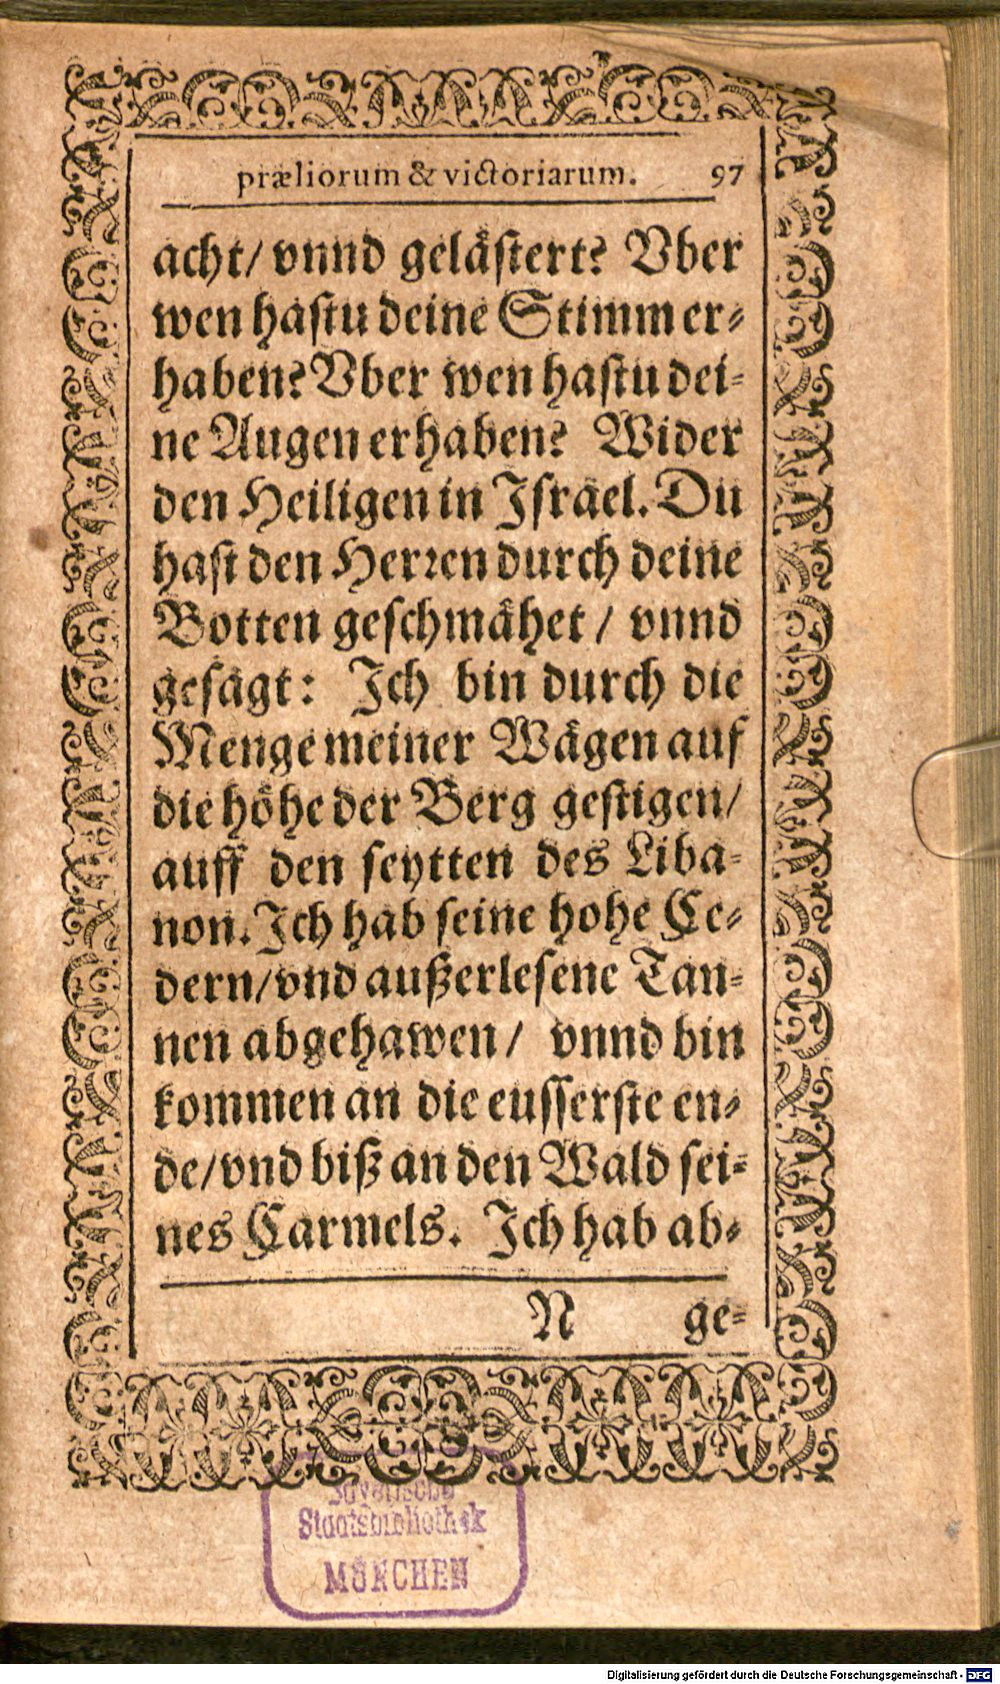 præliorum & victoriarum. 97
acht/ vnnd gelästert? Vber
wen hastu deine Stimm er-
haben? Vber wen hastu dei-
ne Augen erhaben? Wider
den Heiligen in Israel. Du
hast den Herren durch deine
Botten geschmähet / vnnd
gesagt: Ich bin durch die
Menge meiner Wägen auf
die höhe der Berg gestigen/
auff den seytten des Liba-
non. Ich hab seine hohe Ce-
dern/vnd außerlesene Tan-
nen abgehawen / vnnd bin
kommen an die eusserste en-
de/vnd biß an den Wald sei-
nes Carmels. Ich hab ab-
N ge-
Bayerische
Staatsbibliothek
MÜNCHEN
Digitalisierung gefördert durch die Deutsche Forschungsgemeinschaft - DFG